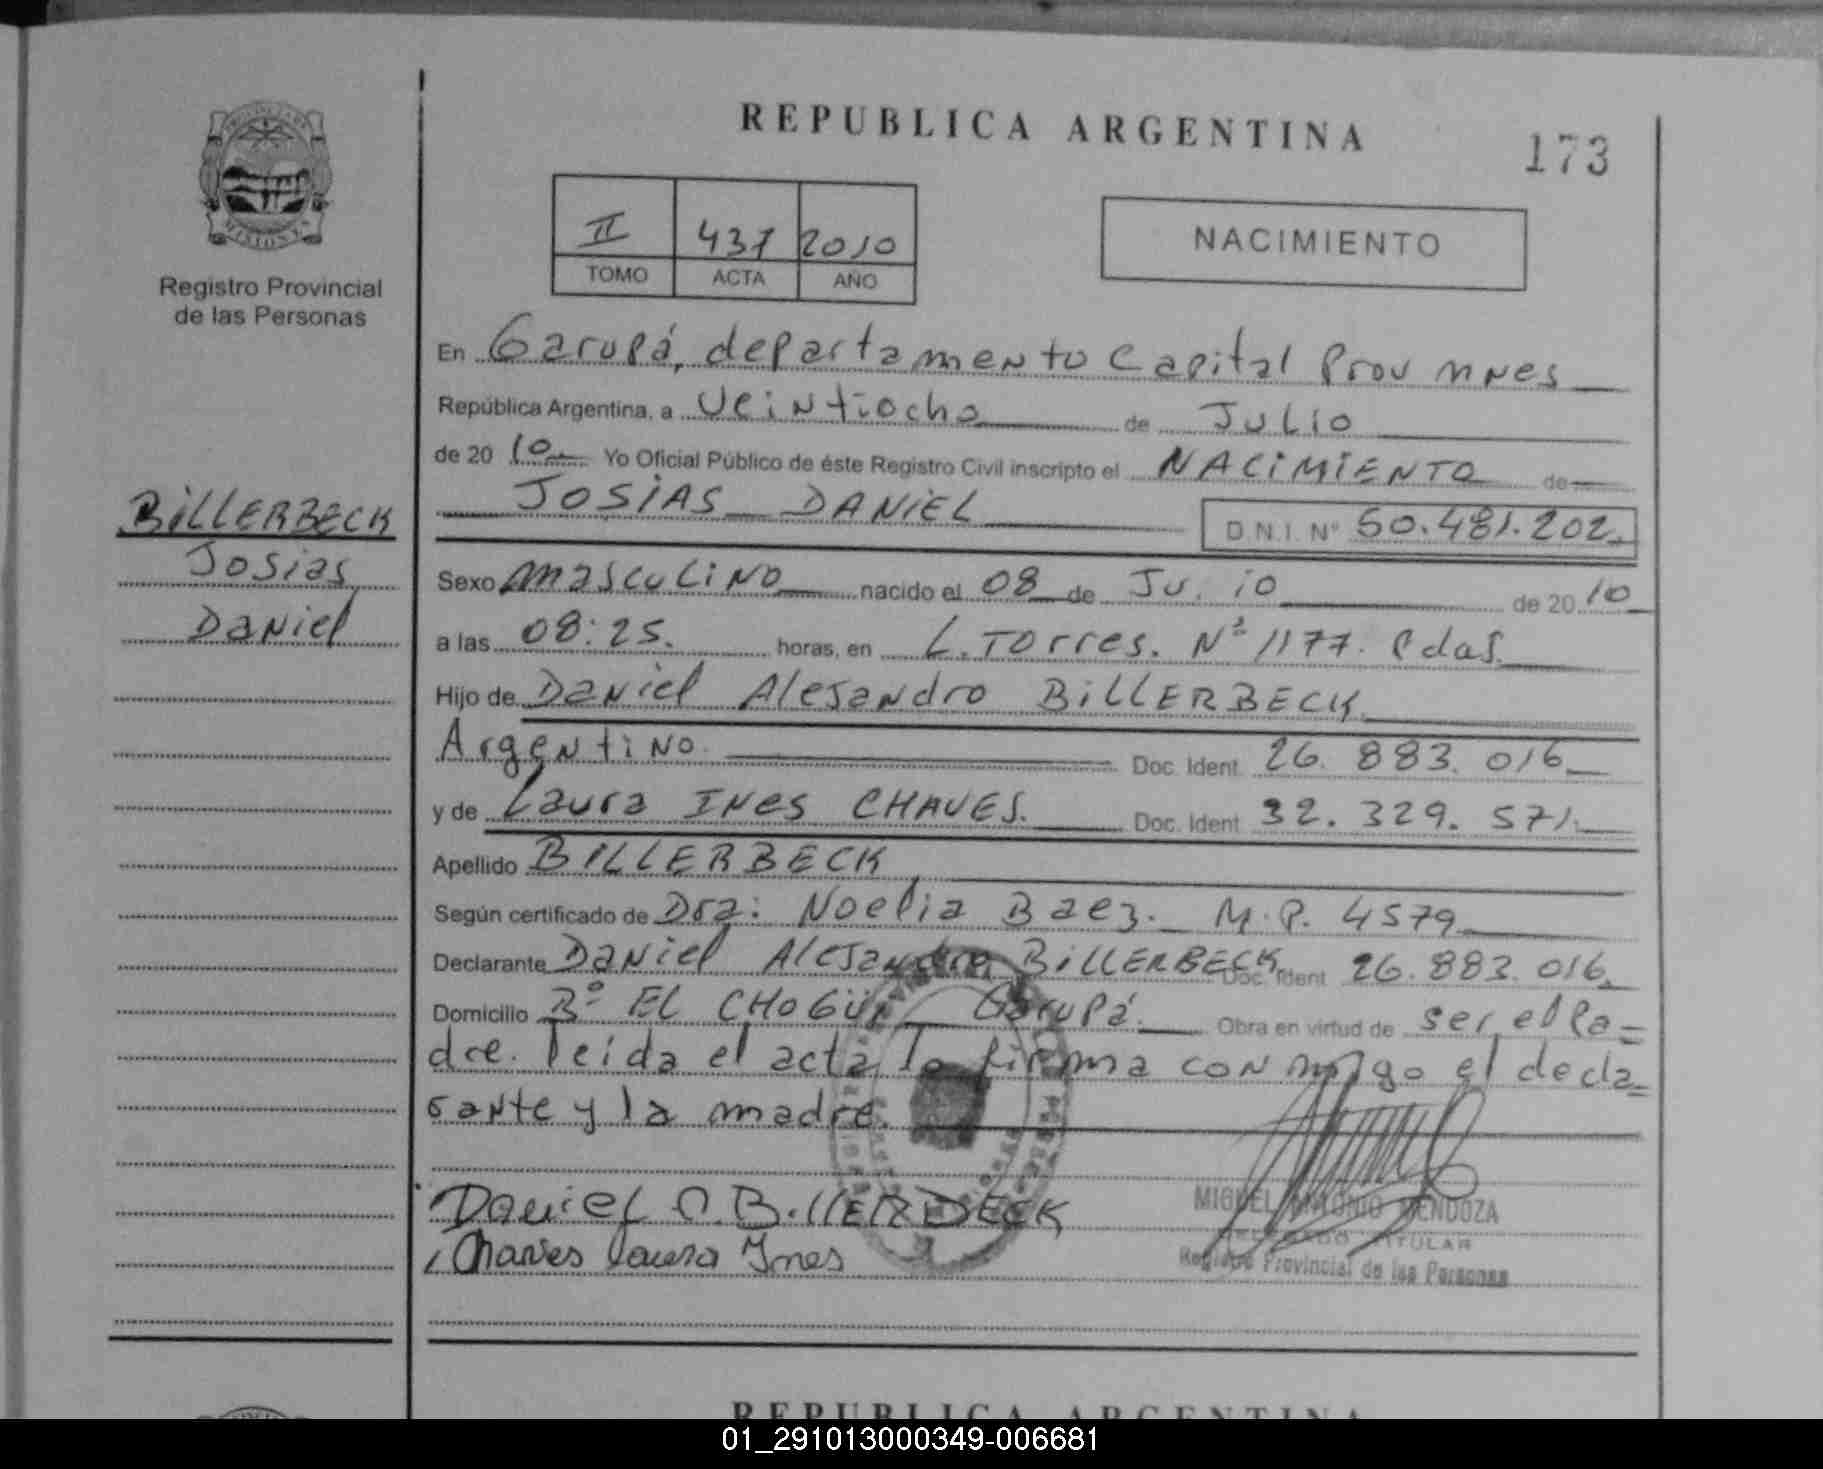 REPUBLICA ARGENTINA
173
II 437 2010
TOMO ACTA AÑO
NACIMIENTO
PROVINCIA DE MISIONES
Registro Provincial
de las Personas
BILLERBECK
Josias
Daniel
En Garupá, departamento Capital Prov mnes
República Argentina, a Veintiocho de Julio
de 20 10 Yo Oficial Público de éste Registro Civil inscripto el NACIMIENTO de
JOSIAS DANIEL D.N.I. Nº 50.481.202.
Sexo masculino nacido el 08 de Ju.io de 20 10
a las 08:25. horas, en L. Torres. Nº 1177. Pdas.
Hijo de Daniel Alejandro BILLERBECK
Argentino. Doc. Ident. 26.883.016
y de Laura Ines CHAVES. Doc. Ident 32.329.571.
Apellido BILLERBECK
Según certificado de Dra: Noelia Baez. M.P. 4579
Declarante Daniel Alejandro BILLERBECK Doc. Ident 26.883.016.
Domicilio Bº EL CHOGÜI Garupá. Obra en virtud de ser el Pa-
dre. leida el acta la firma conmigo el decla-
rante y la madre.
Daniel A. BILLERBECK
Chaves Laura Ines
MIGUEL ANTONIO MENDOZA
DELEGADO TITULAR
Registro Provincial de las Personas
REPUBLICA ARGENTINA
01_291013000349-006681